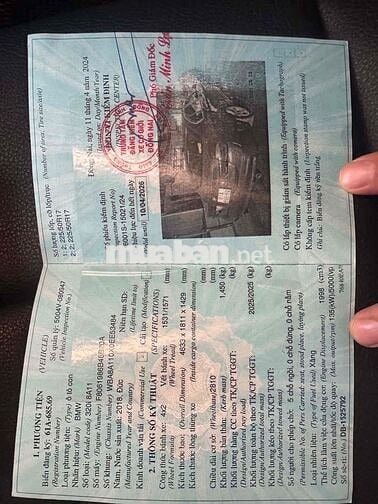 1. PHƯƠNG TIỆN (VEHICLE)
Biển đăng ký: 51A-688.69
Số quản lý: 5004V-089047
(Registration Number) (Vehicle Inspection No.)
Loại phương tiện: (Type) ô tô con
Nhãn hiệu: (Mark) BMW
Số loại: (Model code) 320i 8A11
Số máy: (Engine Number)
Số khung: (Chassis Number)
Năm, Nước sản xuất: 2018, Đức
Niên hạn SD:
(Manufactured Year and Country) (Lifetime limit to)
Kinh doanh vận tải (Commercial Use)
Cải tạo (Modification)
2. THÔNG SỐ KỸ THUẬT (SPECIFICATIONS)
Công thức bánh xe: 4x2
Vết bánh xe: 1531/1571 (mm)
(Wheel Formula) (Wheel Tread)
Kích thước bao: (Overall Dimension) 4633 x 1811 x 1429 (mm)
Kích thước lòng thùng xe: (mm)
(Inside cargo container dimension)
Chiều dài cơ sở: (Wheelbase) 2810 (mm)
Khối lượng bản thân: (Kerb mass) 1,450 (kg)
Khối lượng hàng CC theo TK/CP TGGT: (kg)
(Design/Authorized pay load)
Khối lượng toàn bộ theo TK/CP TGGT: 2025/2025 (kg)
(Design/Authorized total mass)
Khối lượng kéo theo TK/CP TGGT: (kg)
(Design/Authorized towed mass)
Số người cho phép chở: 5 chỗ ngồi, 0 chỗ đứng, 0 chỗ nằm
(Permissible No. of Pers Carried: seat, stood place, laying place)
Loại nhiên liệu: (Type of Fuel Used) Xăng
Thể tích làm việc của động cơ: 1998 (cm3)
(Engine Displacement)
Số sê-ri: (No.) DB-1525792
Số lượng lốp, cỡ lốp/trục (Number of tires, Tire size/axle)
1: 2; 225/50R17
2: 2; 225/50R17
Số phiếu kiểm định
(Inspection Report No)
Có hiệu lực đến hết ngày
(Valid until) 10/04/2025
Đồng Nai, ngày 11 tháng 4 năm 2024
(Issued on: Day/Month/Year)
ĐƠN VỊ KIỂM ĐỊNH
(INSPECTION CENTER)
TRUNG TÂM
ĐĂNG KIỂM
XE CƠ GIỚI
ĐỒNG NAI
Phó Giám Đốc
Có lắp thiết bị giám sát hành trình (Equipped with Tachograph)
Có lắp camera (Equipped with camera)
Không cấp tem kiểm định (Inspection stamp was not issued)
Ghi chú: Biển đăng ký nền trắng
muaban.net